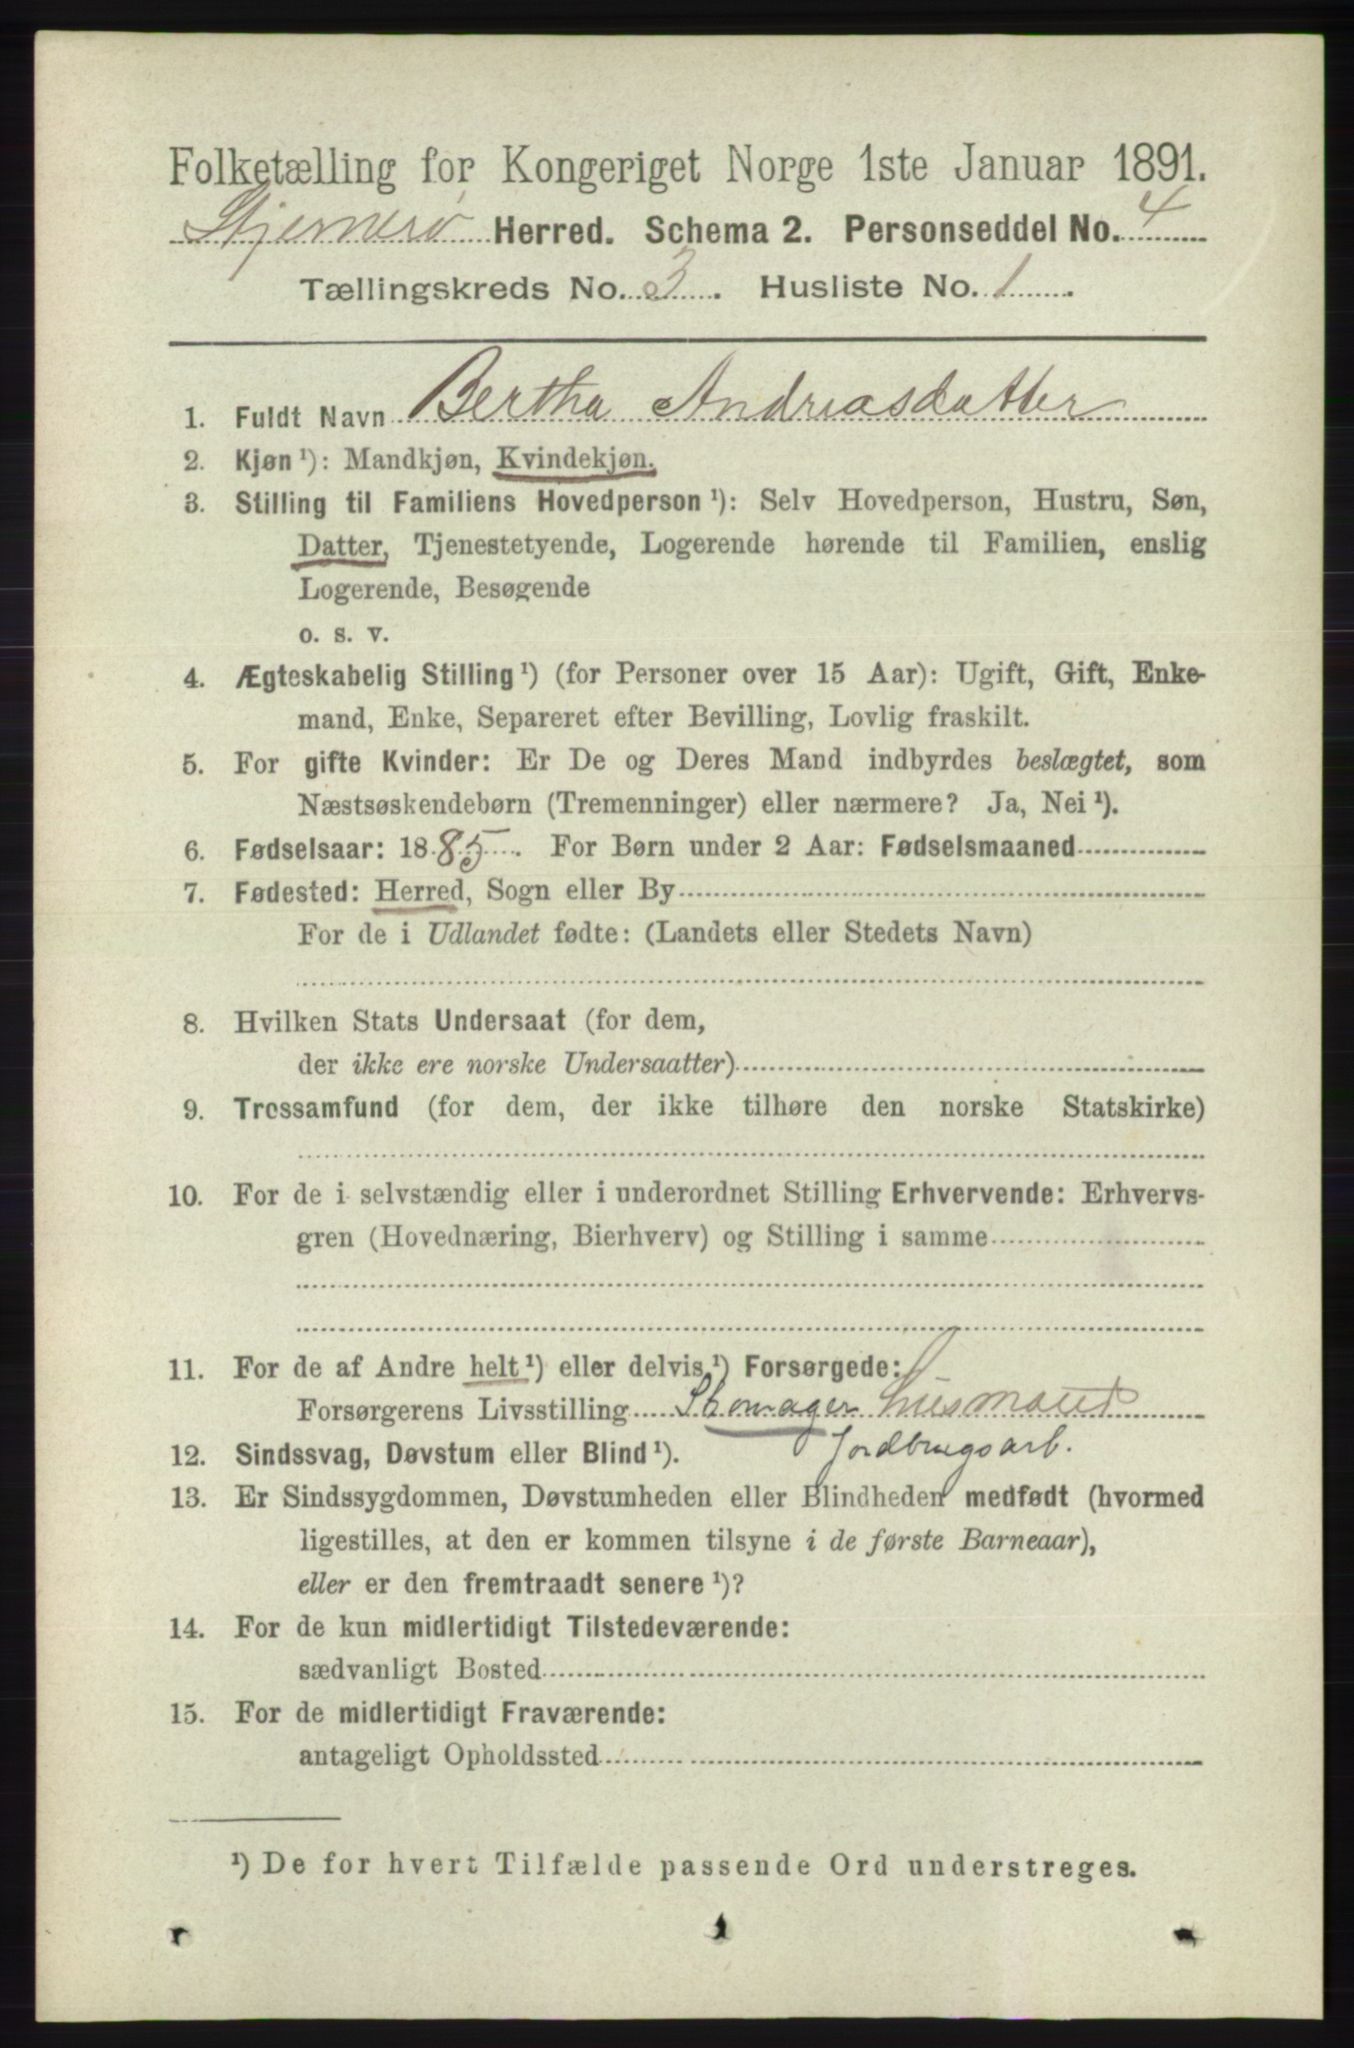 Folketælling for Kongeriget Norge 1ste Januar 1891.
Stjernerø Herred. Schema 2. Personseddel No. 4
Tællingskreds No. 3. Husliste No. 1.
1. Fuldt Navn Bertha Andreasdatter
2. Kjøn ¹): Mandkjøn, Kvindekjøn.
3. Stilling til Familiens Hovedperson ¹): Selv Hovedperson, Hustru, Søn,
Datter, Tjenestetyende, Logerende hørende til Familien, enslig
Logerende, Besøgende
o. s. v.
4. Ægteskabelig Stilling ¹) (for Personer over 15 Aar): Ugift, Gift, Enke-
mand, Enke, Separeret efter Bevilling, Lovlig fraskilt.
5. For gifte Kvinder: Er De og Deres Mand indbyrdes beslægtet, som
Næstsøskendebørn (Tremenninger) eller nærmere? Ja, Nei ¹).
6. Fødselsaar: 1885. For Børn under 2 Aar: Fødselsmaaned
7. Fødested: Herred, Sogn eller By
For de i Udlandet fødte: (Landets eller Stedets Navn)
8. Hvilken Stats Undersaat (for dem,
der ikke ere norske Undersaatter)
9. Trossamfund (for dem, der ikke tilhøre den norske Statskirke)
10. For de i selvstændig eller i underordnet Stilling Erhvervende: Erhvervs-
gren (Hovednæring, Bierhverv) og Stilling i samme
11. For de af Andre helt ¹) eller delvis ¹) Forsørgede:
Forsørgerens Livsstilling Skomager Husmand
Jordbrugsarb.
12. Sindssvag, Døvstum eller Blind ¹).
13. Er Sindssygdommen, Døvstumheden eller Blindheden medfødt (hvormed
ligestilles, at den er kommen tilsyne i de første Barneaar),
eller er den fremtraadt senere ¹)?
14. For de kun midlertidigt Tilstedeværende:
sædvanligt Bosted
15. For de midlertidigt Fraværende:
antageligt Opholdssted
¹) De for hvert Tilfælde passende Ord understreges.